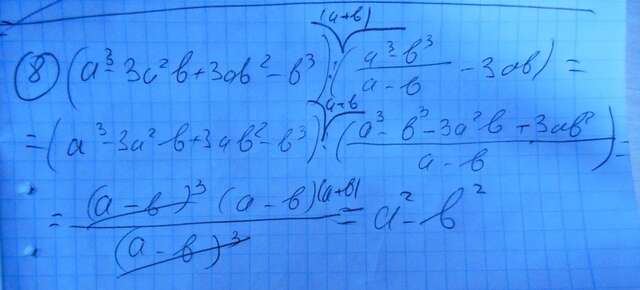 (a+b)
⑧ (a³ - 3a²b + 3ab² - b³) : ( (a³ - b³)/(a - b) - 3ab ) =
a+b
= (a³ - 3a²b + 3ab² - b³) : ( (a³ - b³ - 3a²b + 3ab²)/(a - b) ) =
= ((a - b)³ (a - b)(a+b))/((a - b)³) = a² - b²